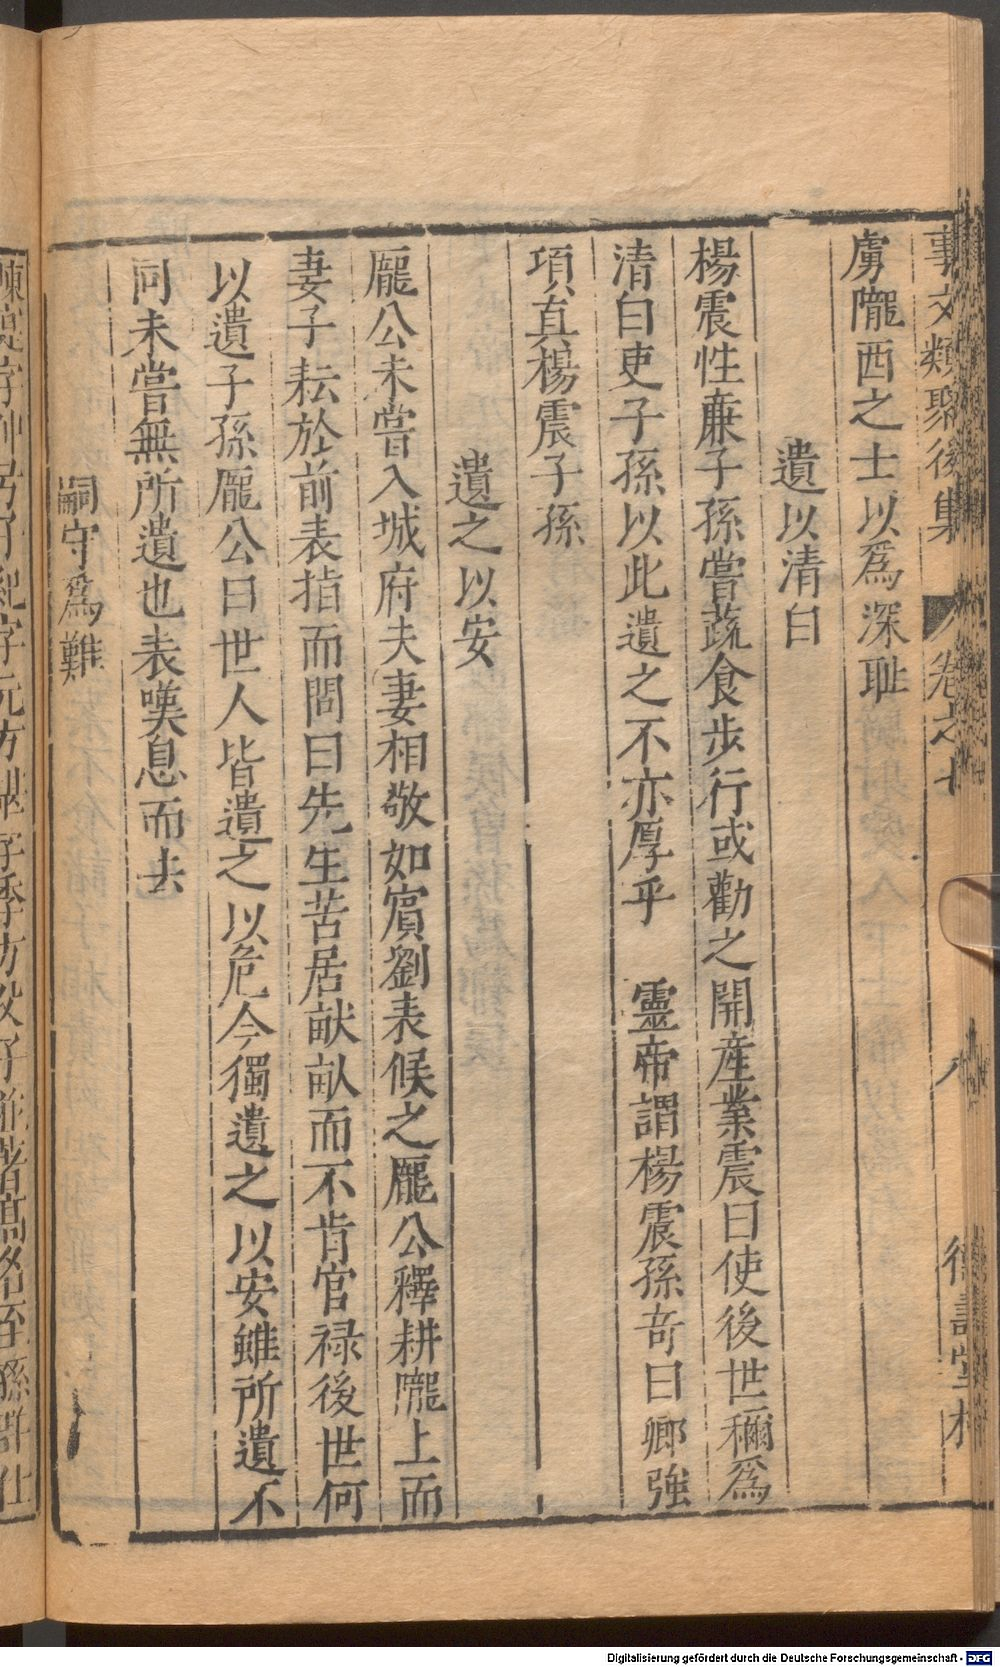 事文類聚後集 卷之
虜隴西之士以爲深耻
遺以清白
楊震性廉子孫嘗蔬食步行或勸之開產業震曰使後世稱爲
清白吏子孫以此遺之不亦厚乎 靈帝謂楊震孫奇曰卿強
項真楊震子孫
遺之以安
龐公未嘗入城府夫妻相敬如賔劉表候之龐公釋耕隴上而
妻子耘於前表指而問曰先生苦居畎畝而不肯官禄後世何
以遺子孫龐公曰世人皆遺之以危今獨遺之以安雖所遺不
同未嘗無所遺也表嘆息而去
嗣守爲難
Digitalisierung gefördert durch die Deutsche Forschungsgemeinschaft - DFG